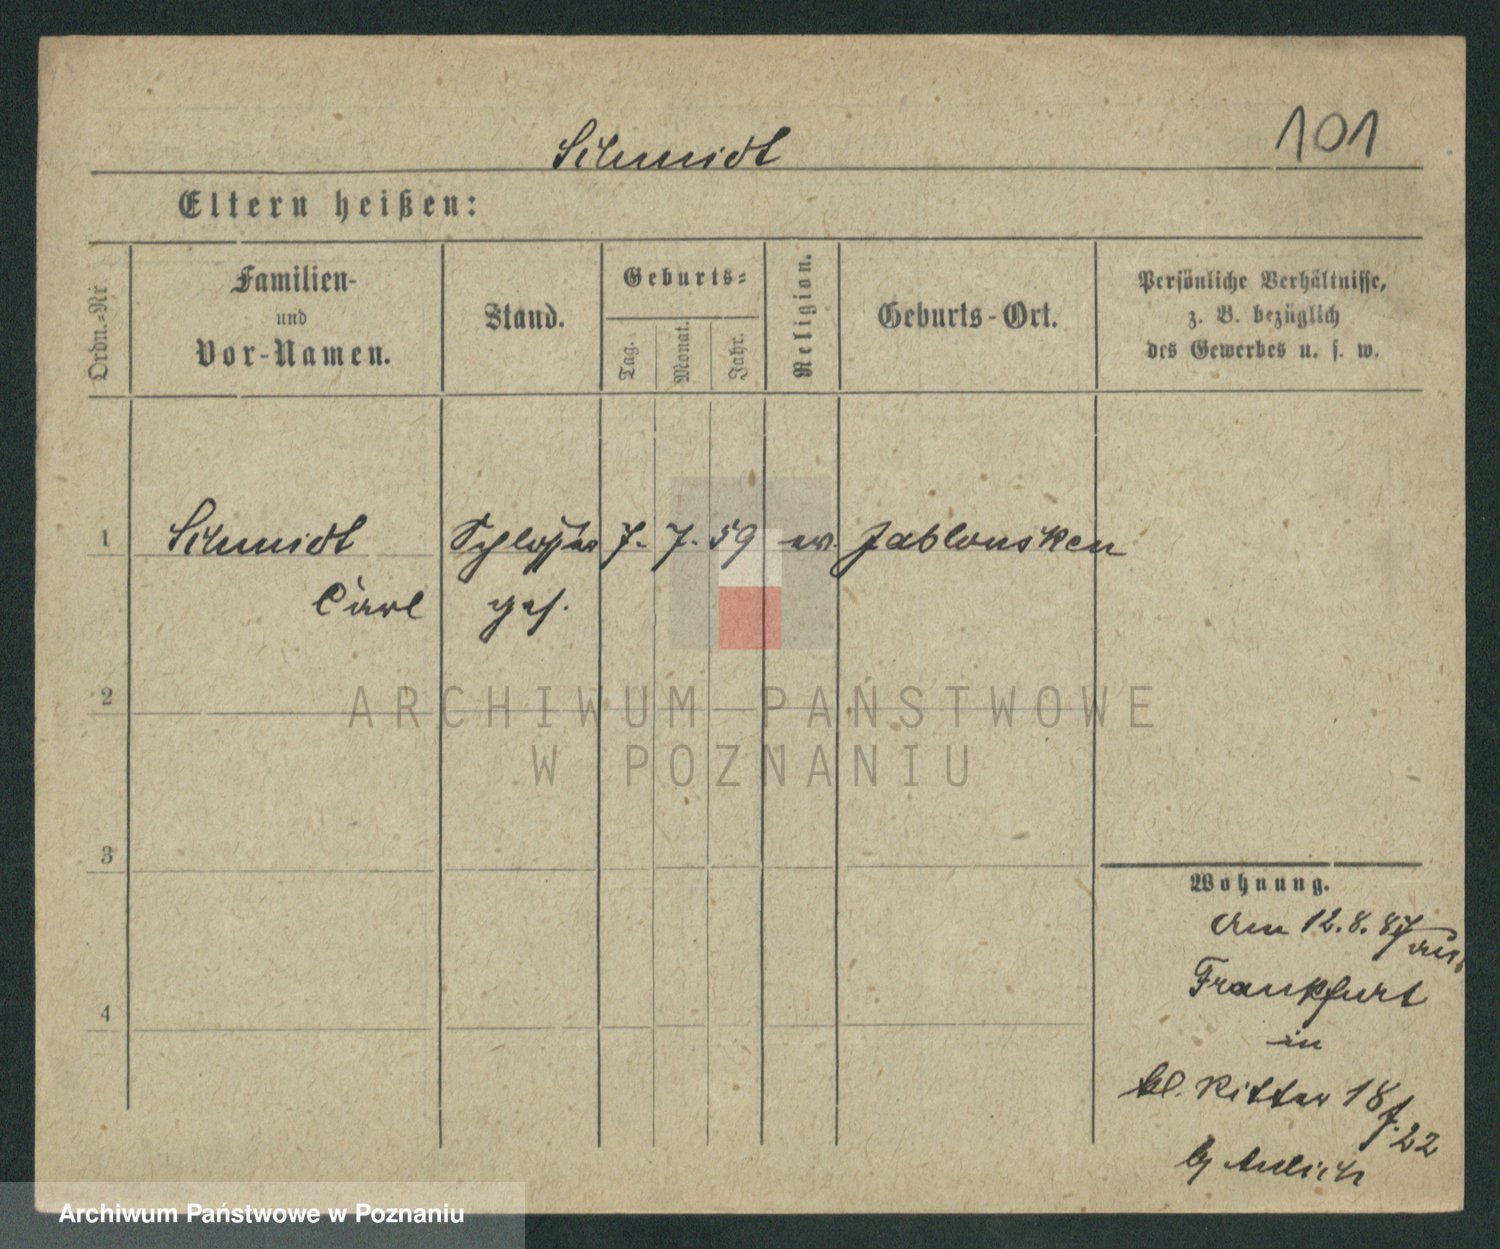 Schmidt 101
Eltern heißen:
Ordn.-Nr
Familien-
und
Vor-Namen.
Stand.
Geburts-
Tag.
Monat.
Jahr.
Religion.
Geburts-Ort.
Persönliche Verhältnisse,
z. B. bezüglich
des Gewerbes u. s. w.
1 Schmidt Schlosser 7. 7. 59 ev. Jablonsken
Carl ges.
2
ARCHIWUM PAŃSTWOWE
W POZNANIU
3
Wohnung.
am 12.8.87 aus
Frankfurt
4
in
kl. Ritter 18
f. 22
Archiwum Państwowe w Poznaniu